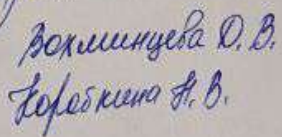 Вохминцева О. В.
Коробкина Н. В.